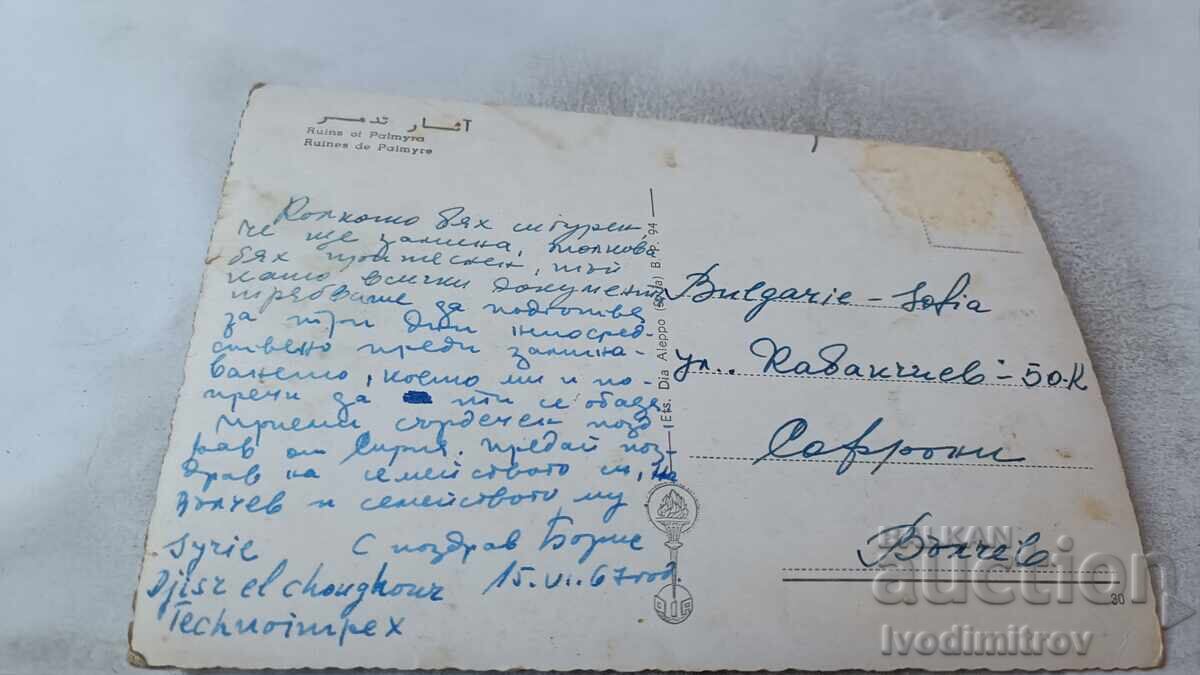 آثار تدمر
Ruins of Palmyra
Ruines de Palmyre
Колкото бях сигурен
че ще замина, толкова
бях притеснен, тъй
като всички документи
трябваше да подготвя
за три дни непосред-
ствено преди замина-
ването, което ми и по-
пречи да ти се обадя
Приеми сърдечен позд
рав от Сирия. Предай поз-
драв на семейството си, на
Вълчев и семейството му
С поздрав Борис
Syrie
Djisr el choughour 15.VI.67 год.
Technoimpex
Ets. Dia Aleppo (Syria) B. P. 94
Bulgarie - Sofia
ул. Кабакчиев - 50-К
Софрони
Вълчев
30
BALKAN
auction
Ivodimitrov